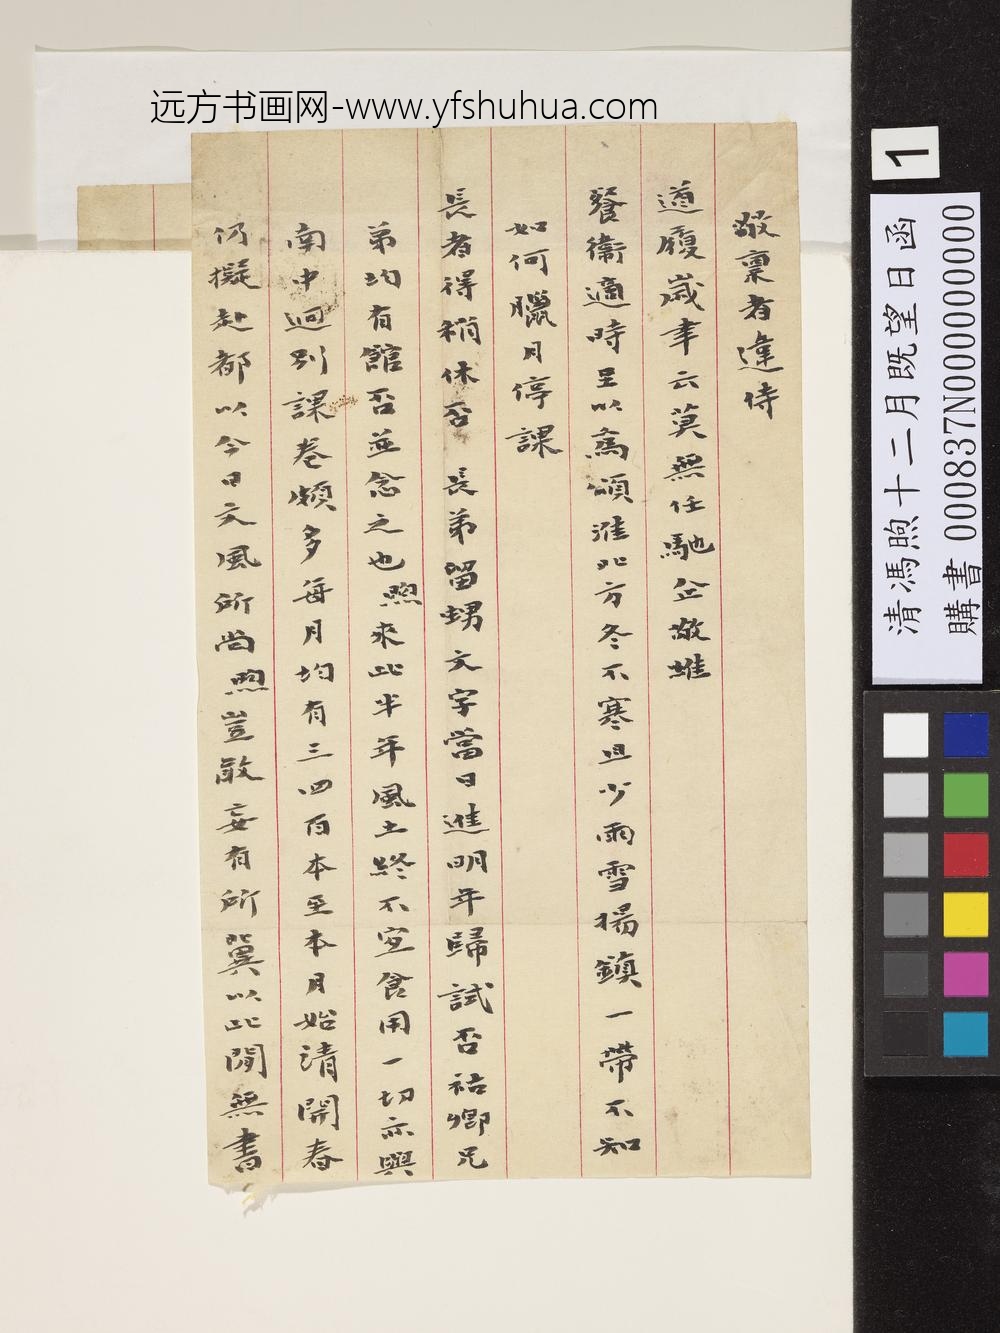 远方书画网-www.yfshuhua.com
敬稟者違侍
道履歲聿云莫無任馳企敬維
餐衞適時至以為頌淮北方冬不寒且少雨雪揚鎮一帶不知
如何臘月停課
長者得稍休否長弟留甥文字當日進明年歸試否祐卿兄
弟均有館否並念之也煦來此半年風土終不宜食用一切亦與
南中迥別課卷頗多每月均有三四百本至本月始清開春
仍擬赴都以今日文風所尚煦豈敢妄有所冀以此間無書
1
清馮煦十二月既望日函
購書 000837N000000000